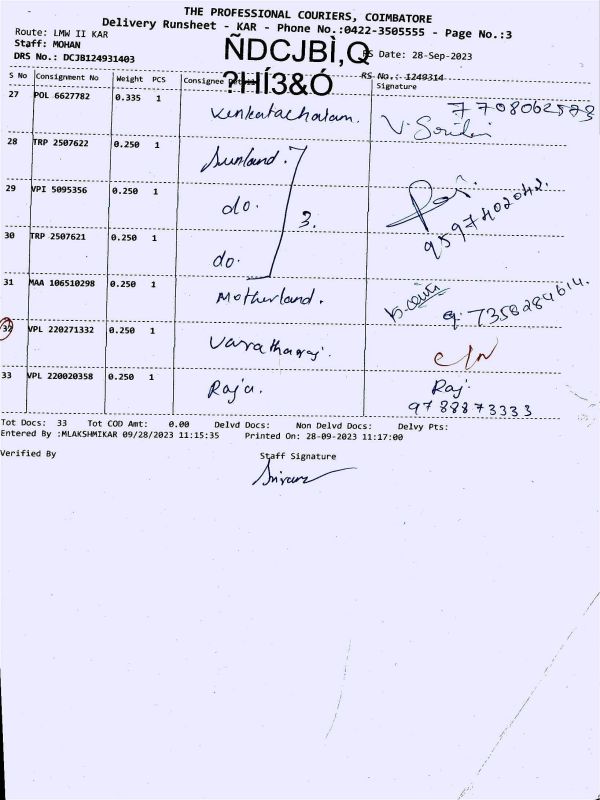 THE PROFESSIONAL COURIERS, COIMBATORE
Delivery Runsheet - KAR - Phone No.:0422-3505555 - Page No.:3
Route: LMW II KAR
Staff: MOHAN
DRS No.: DCJB124931403
ÑDCJBÌ,Q
?HÍ3&Ó
RS Date: 28-Sep-2023
RS No.: 1249314
S No Consignment No Weight PCS Consignee Details Signature
27 POL 6627782 0.335 1 Venkatachalam. 7708062573
28 TRP 2507622 0.250 1 Sunland.
29 VPI 5095356 0.250 1 do. 3. 9597402042.
30 TRP 2507621 0.250 1 do.
31 MAA 106510298 0.250 1 Motherland. 7358284614.
32 VPL 220271332 0.250 1 Varatharaj.
33 VPL 220020358 0.250 1 Raja. Raj.
9788873333
Tot Docs: 33 Tot COD Amt: 0.00 Delvd Docs: Non Delvd Docs: Delvy Pts:
Entered By :MLAKSHMIKAR 09/28/2023 11:15:35 Printed On: 28-09-2023 11:17:00
Verified By Staff Signature